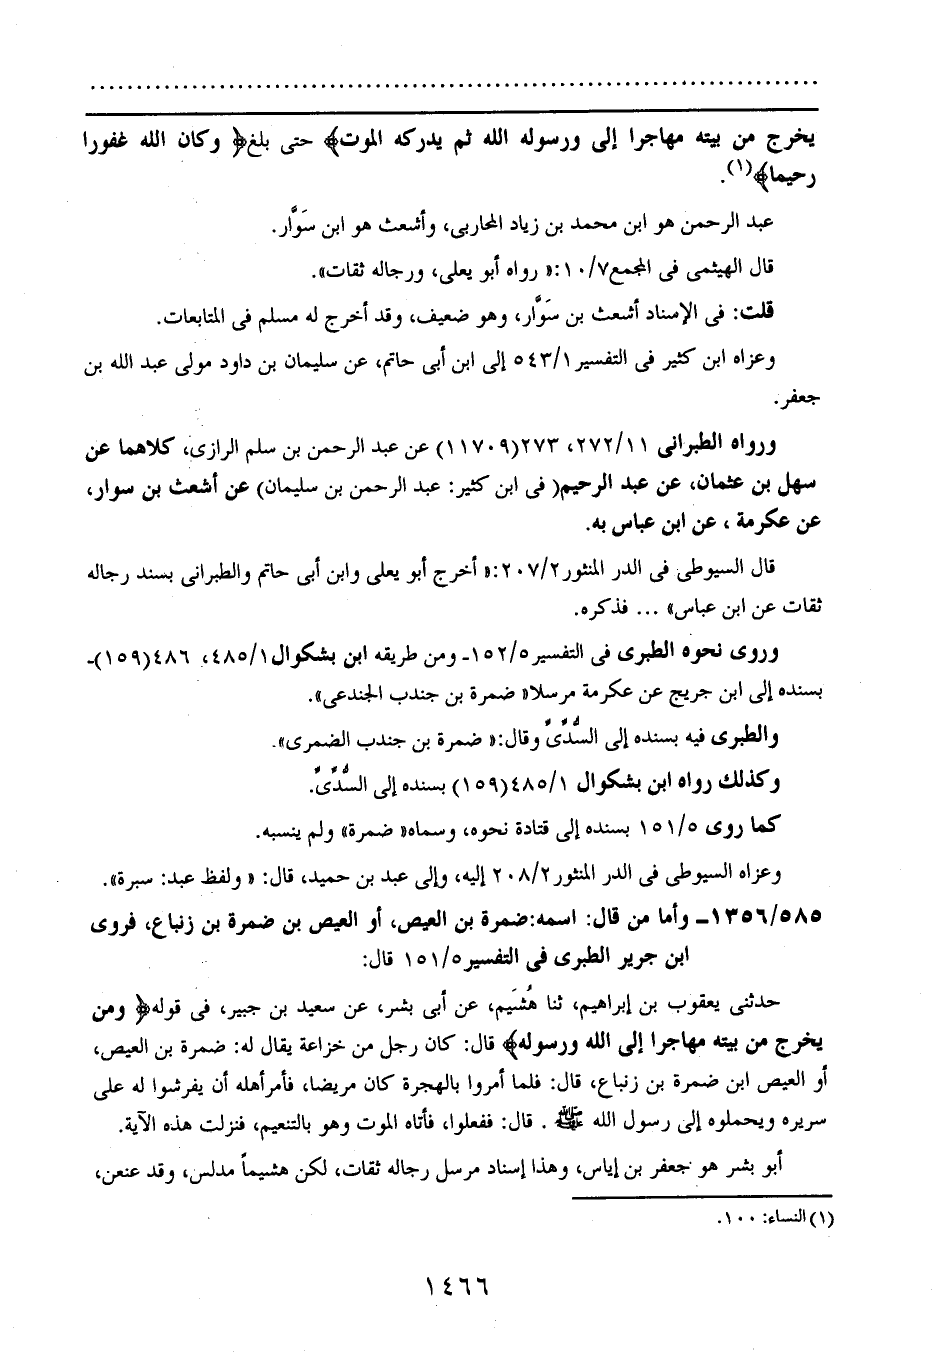 يخرج من بيته مهاجرا إلى ورسوله الله ثم يدركه الموت﴾ حتى بلغ﴿ وكان الله غفورا
رحيما﴾(١).
عبد الرحمن هو ابن محمد بن زياد المحاربى، وأشعث هو ابن سَوَّار.
قال الهيثمى فى المجمع١٠/٧:« رواه أبو يعلى، ورجاله ثقات».
قلت: فى الإسناد أشعث بن سَوَّار، وهو ضعيف، وقد أخرج له مسلم فى المتابعات.
وعزاه ابن كثير فى التفسير٥٤٣/١ إلى ابن أبى حاتم، عن سليمان بن داود مولى عبد الله بن
جعفر.
ورواه الطبرانى ٢٧٢/١١، ٢٧٣(١١٧٠٩) عن عبد الرحمن بن سلم الرازى، كلاهما عن
سهل بن عثمان، عن عبد الرحيم( فى ابن كثير: عبد الرحمن بن سليمان) عن أشعث بن سوار،
عن عكرمة ، عن ابن عباس به.
قال السيوطى فى الدر المنثور٢٠٧/٢:« أخرج أبو يعلى وابن أبى حاتم والطبرانى بسند رجاله
ثقات عن ابن عباس» ... فذكره.
وروى نحوه الطبرى فى التفسير١٥٢/٥ـ ومن طريقه ابن بشكوال٤٨٥/١، ٤٨٦(١٥٩)ـ
بسنده إلى ابن جريج عن عكرمة مرسلا« ضمرة بن جندب الجندعى».
والطبرى فيه بسنده إلى السُّدِّىِّ وقال:« ضمرة بن جندب الضمرى».
وكذلك رواه ابن بشكوال ٤٨٥/١(١٥٩) بسنده إلى السُّدِّىِّ.
كما روى ١٥١/٥ بسنده إلى قتادة نحوه، وسماه« ضمرة» ولم ينسبه.
وعزاه السيوطى فى الدر المنثور٢٠٨/٢ إليه، وإلى عبد بن حميد، قال: « ولفظ عبد: سبرة».
١٣٥٦/٥٨٥ـ وأما من قال: اسمه:ضمرة بن العيص، أو العيص بن ضمرة بن زنباع، فروى
ابن جرير الطبرى فى التفسير١٥١/٥ قال:
حدثنى يعقوب بن إبراهيم، ثنا هُشَيم، عن أبى بشر، عن سعيد بن جبير، فى قوله﴿ ومن
يخرج من بيته مهاجرا إلى الله ورسوله﴾ قال: كان رجل من خزاعة يقال له: ضمرة بن العيص،
أو العيص ابن ضمرة بن زنباع، قال: فلما أمروا بالهجرة كان مريضا، فأمرأهله أن يفرشوا له على
سريره ويحملوه إلى رسول الله ﷺ . قال: ففعلوا، فأتاه الموت وهو بالتنعيم، فنزلت هذه الآية.
أبو بشر هو جعفر بن إياس، وهذا إسناد مرسل رجاله ثقات، لكن هشيماً مدلس، وقد عنعن،
(١) النساء: ١٠٠.
١٤٦٦